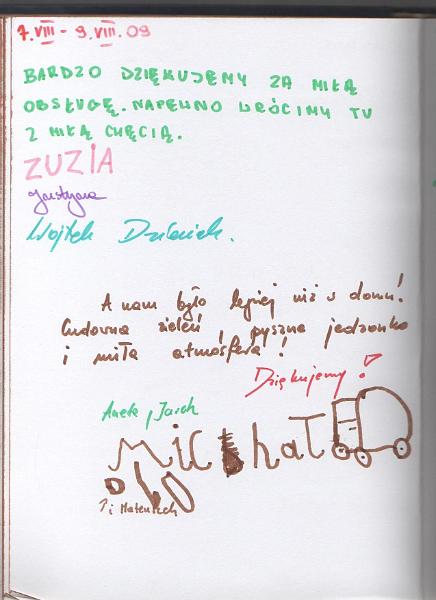 7.VIII - 9.VIII.09
BARDZO DZIĘKUJEMY ZA MIŁĄ
OBSŁUGĘ. NAPEWNO WRÓCIMY TU
Z MIŁĄ CHĘCIĄ.
ZUZIA
Justyna
Wojtek
A nam było lepiej niż w domu!
Cudowna zieleń, pyszne jedzonko
i miła atmosfera!
Dziękujemy!
Aneta, Jacek
Michał
i Mateuszek